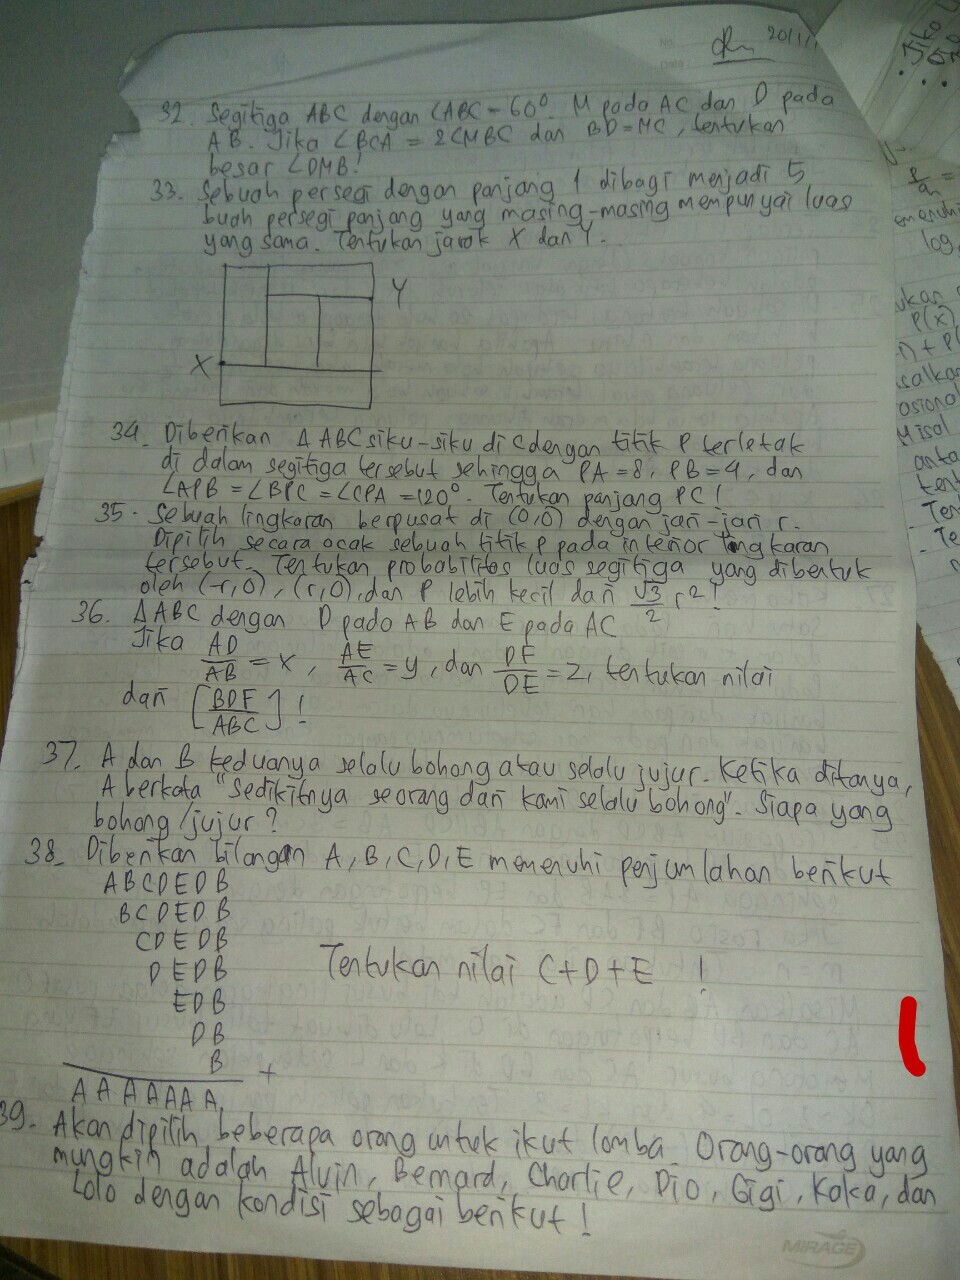 20/1/1
32. Segitiga ABC dengan ∠ABC = 60°. M pada AC dan D pada
AB. Jika ∠BCA = 2∠MBC dan BD=MC, tentukan
besar ∠DMB!
33. Sebuah persegi dengan panjang 1 dibagi menjadi 5
buah persegi panjang yang masing-masing mempunyai luas
yang sama. Tentukan jarak X dan Y.
Y
X
34. Diberikan Δ ABC siku-siku di C dengan titik P terletak
di dalam segitiga tersebut sehingga PA = 8, PB = 4, dan
∠APB = ∠BPC = ∠CPA = 120°. Tentukan panjang PC!
35. Sebuah lingkaran berpusat di (0,0) dengan jari-jari r.
Dipilih secara acak sebuah titik P pada interior lingkaran
tersebut. Tentukan probabilitas luas segitiga yang dibentuk
oleh (-r,0), (r,0), dan P lebih kecil dari √3/2 r²!
36. ΔABC dengan D pada AB dan E pada AC
Jika AD/AB = x, AE/AC = y, dan DF/DE = z, tentukan nilai
dari [BDF/ABC]!
37. A dan B keduanya selalu bohong atau selalu jujur. Ketika ditanya,
A berkata "Sedikitnya seorang dari kami selalu bohong". Siapa yang
bohong/jujur?
38. Diberikan bilangan A, B, C, D, E memenuhi penjumlahan berikut
ABCDEDB
BCDEDB
CDEDB
DEDB
EDB
DB
B
+
AAAAAAA
Tentukan nilai C+D+E !
39. Akan dipilih beberapa orang untuk ikut lomba. Orang-orang yang
mungkin adalah Alvin, Bernard, Charlie, Dio, Gigi, Koka, dan
Lolo dengan kondisi sebagai berikut!
MIRAGE
Jika
log
ukan
P(x)
salkan
asional
Misal
anta
tent
Ten
Te